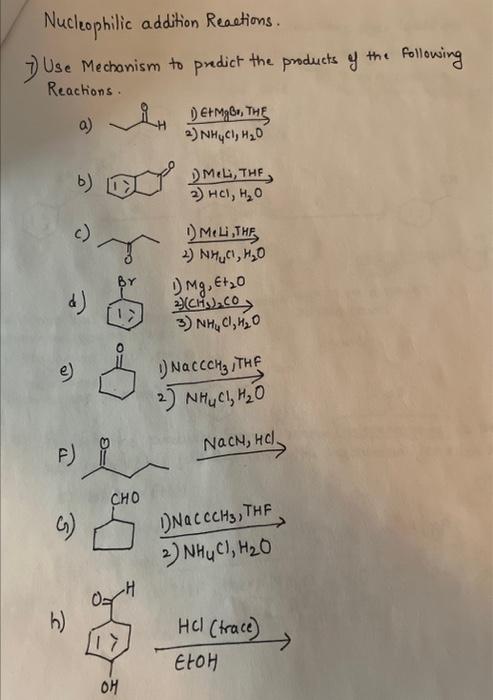 Nucleophilic addition Reactions.
7) Use Mechanism to predict the products of the following
Reactions.
a) O H 1) EtMgBr, THF
2) NH4Cl, H2O
b) O 1) MeLi, THF
2) HCl, H2O
c) O 1) MeLi, THF
2) NH4Cl, H2O
d) Br 1) Mg, Et2O
2) (CH3)2CO
3) NH4Cl, H2O
e) O 1) NaCCCH3, THF
2) NH4Cl, H2O
F) O NaCN, HCl
G) CHO 1) NaCCCH3, THF
2) NH4Cl, H2O
h) O H HCl (trace)
EtOH
OH